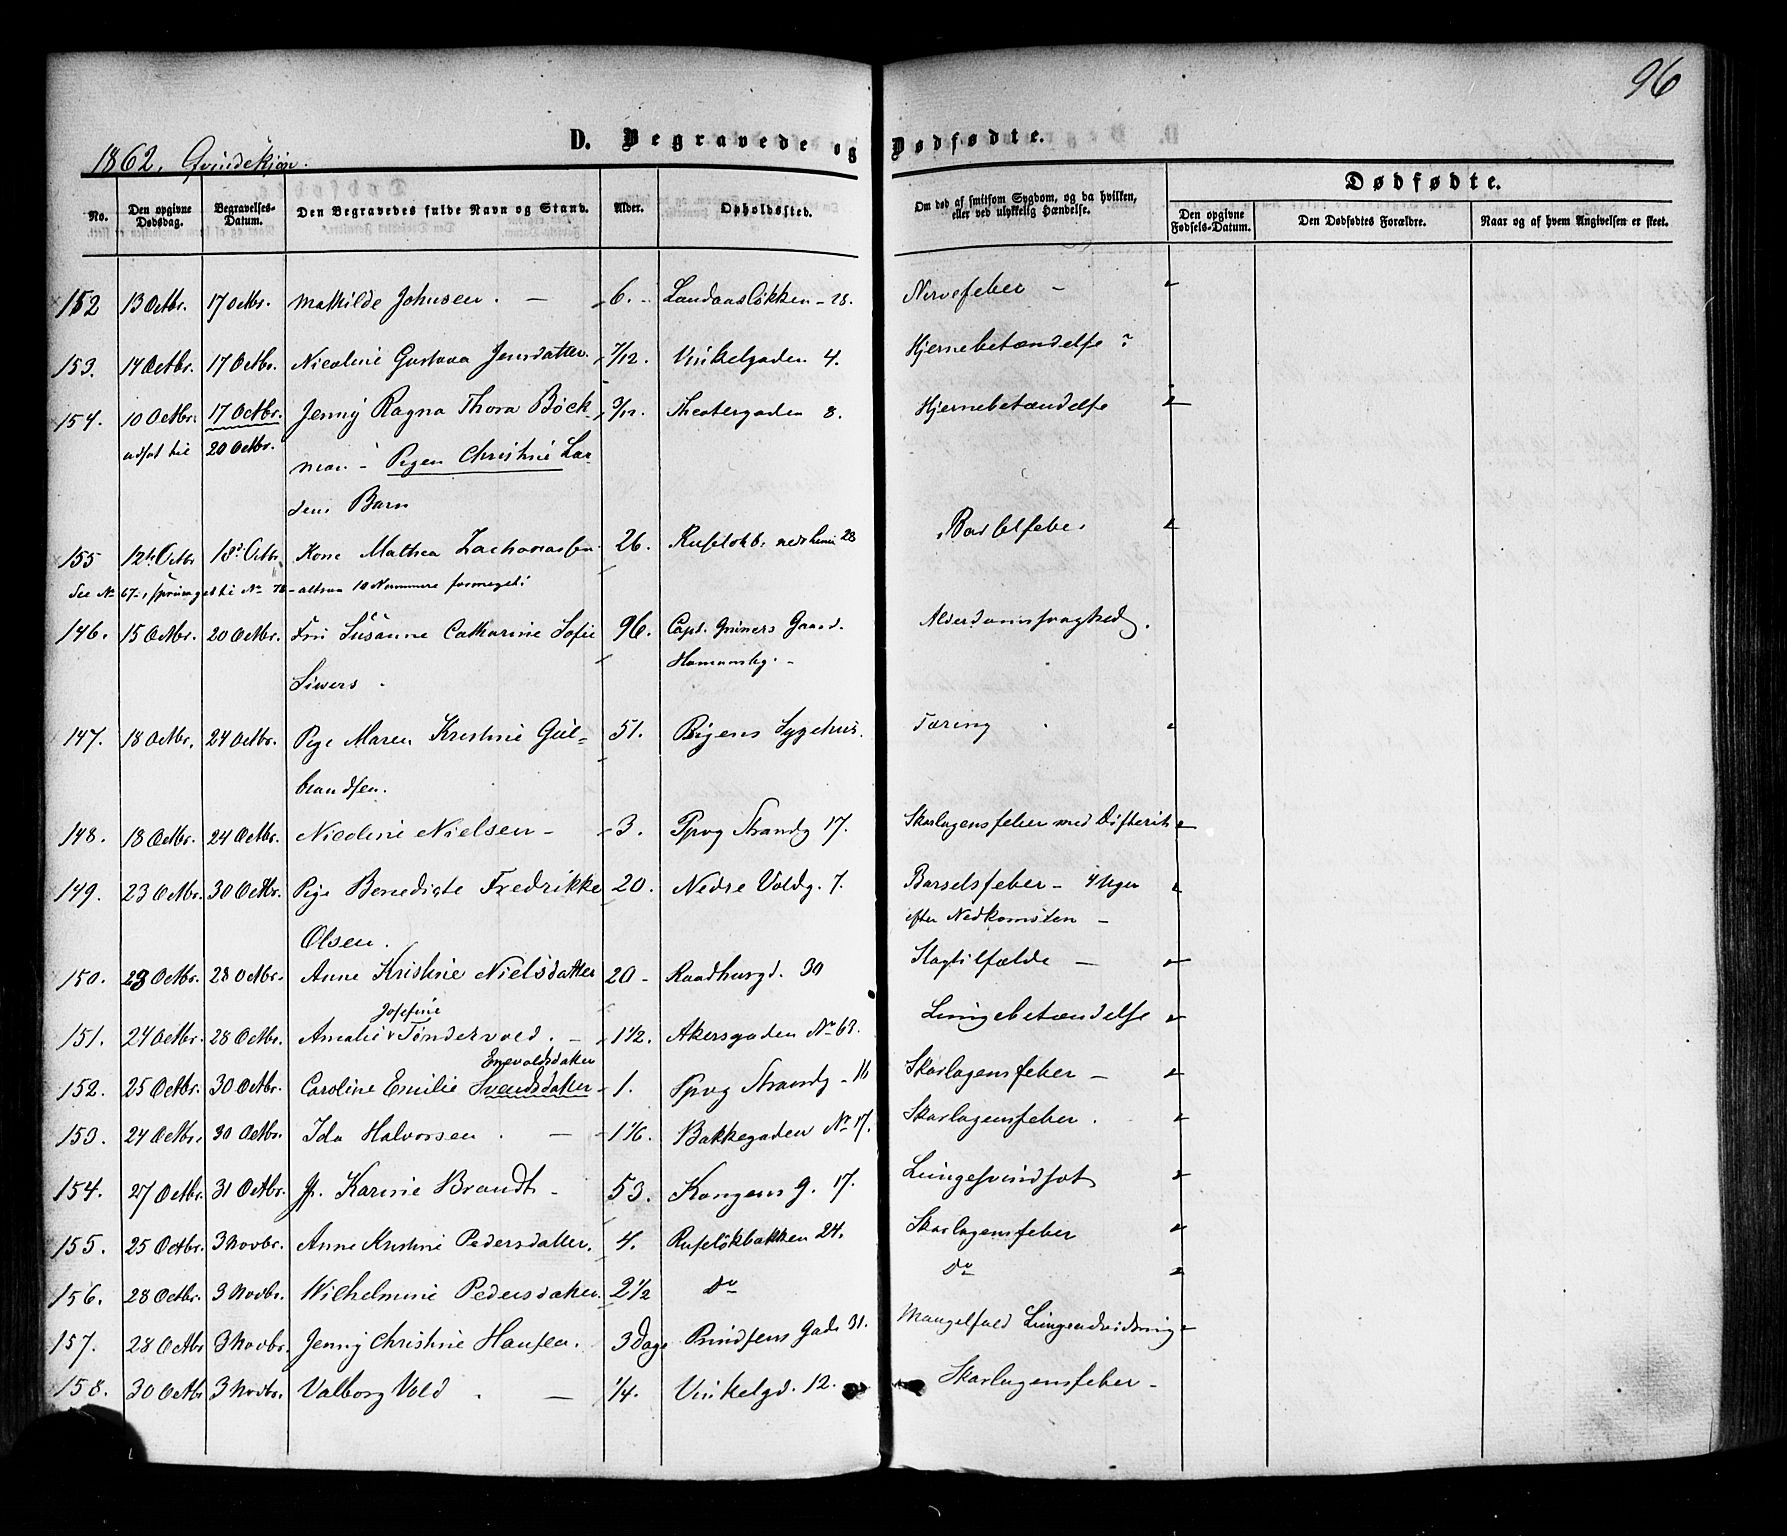 96
1862. Qvindekjøn.
D. Begravede og Dødfødte.
No. | Den opgivne Dødsdag. | Begravelses-Datum. | Den Begravedes fulde Navn og Stand. | Alder. | Opholdssted. | Om død af smitsom Sygdom, og da hvilken, eller ved ulykkelig Hændelse. | Dødfødte. | Den opgivne Fødsels-Datum. | Den Dødfødtes Forældre. | Naar og af hvem Angivelsen er skeet.
152 | 13 Octbr. | 17 Octbr. | Mathilde Johnsen. – | 6. | Landaasløkken – 28. | Nervefeber –
153. | 14 Octbr. | 17 Octbr. | Nicoline Gustava Jensdatter | 7/12. | Vinkelgaden 4. | Hjernebetændelse ?
154. | 10 Octbr. | 17 Octbr. | Jenny Ragna Thora Böck- | 3/12. | Theatergaden 8. | Hjernebetændelse
udsat til | 20 Octbr. | man – Pigen Christine Lar-
sens Barn
155 | 12te Octbr | 18de Octbr. | Kone Mathea Zachariassen | 26. | Ruseløkb. 28 | Barselfeber
See No 67 No altsaa 10 Nummere formeget:
146. | 15 Octbr. | 20 Octbr. | Fru Susanne Catharine Sofie | 96. | Capt. Grüners Gaard. | Alderdomssvaghed.
Siwers. | Homansby. –
147. | 18 Octbr. | 24 Octbr. | Pige Maren Kristine Gul- | 51. | Rigens Sygehus. | Tæring
brandsen.
148. | 18 Octbr. | 24 Octbr. | Nicoline Nielsen – | 3. | Ppvg Strandg 17. | Skarlagensfeber med Difterit
149. | 23 Octbr. | 30 Octbr. | Pige Benedicte Fredrikke | 20. | Nedre Voldg. 7. | Barselsfeber – 4 Uger
Olsen. | efter Nedkomsten –
150. | 23 Octbr. | 28 Octbr. | Anne Kristine Nielsdatter | 20 – | Raadhusgd. 30 | Slagtilfælde –
Josefine
151. | 24 Octbr. | 28 Octbr. | Amalie Tøndervold. – | 1 1/2. | Akersgaden No 63. | Lungebetændelse
Enevoldsdatter
152. | 25 Octbr. | 30 Octbr. | Caroline Emilie Svendsdatter | 1. | Ppvg Strandg – 16 | Skarlagensfeber –
153. | 24 Octbr. | 30 Octbr. | Ida Halvorsen. – | 1 1/6. | Bakkegaden No 17. | Skarlagensfeber.
154. | 27 Octbr. | 31 Octbr. | Jf. Karine Brandt – | 53. | Kongens g. 17. | Lungesvindsot
155. | 25 Octbr. | 3 Novbr. | Anne Kristine Pedersdatter. | 4. | Ruseløkbakken 24. | Skarlagensfeber
156. | 28 Octbr. | 3 Novbr. | Wilhelmine Pedersdatter. | 2 1/2 | Do | Do
157. | 28 Octbr | 3 Novbr. | Jenny Christine Hansen. | 3 Dage | Prindsens Gade 31. | Mangelfuld Lungeudvidning
158. | 30 Octbr | 3 Novbr. | Valborg Vold. – | 1/4. | Vinkelgd. 12. | Skarlagensfeber –